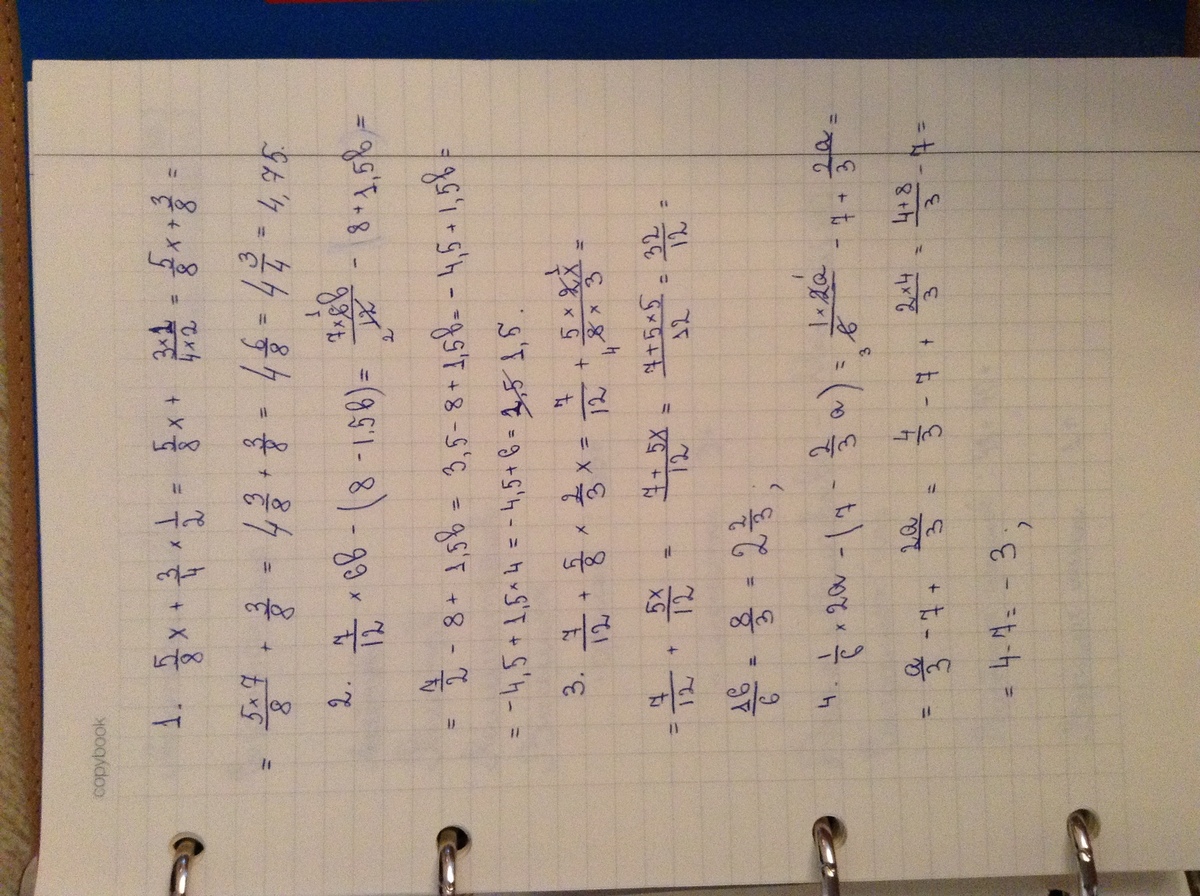 copybook
1. 5/8 x + 3/4 × 1/2 = 5/8 x + 3×1/4×2 = 5/8 x + 3/8 =
= 5×7/8 + 3/8 = 4 3/8 + 3/8 = 4 6/8 = 4 3/4 = 4,75.
2. 7/12 × 6b - (8 - 1,5b) = 7×6b/12 - (8 + 1,5b) =
= 7/2 - 8 + 1,5b = 3,5 - 8 + 1,5b = - 4,5 + 1,5b =
= - 4,5 + 1,5×4 = - 4,5 + 6 = 1,5.
3. 7/12 + 5/8 × 2/3 x = 7/12 + 5×2x/8×3 =
= 7/12 + 5x/12 = 7+5x/12 = 7+5×5/12 = 32/12 =
16/6 = 8/3 = 2 2/3;
4. 1/6 × 2a - (7 - 2/3 a) = 1×2a/6 - 7 + 2a/3 =
= a/3 - 7 + 2a/3 = 4/3 - 7 + 2×4/3 = 4+8/3 - 7 =
= 4 - 7 = - 3;